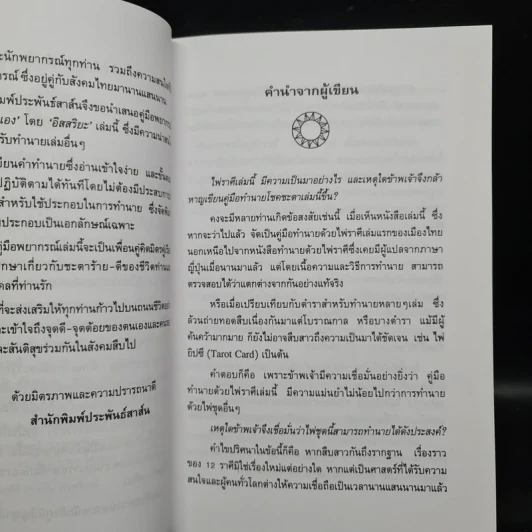 ะนักพยากรณ์ทุกท่าน รวมถึงความสนใจ
รณ์ ซึ่งอยู่คู่กับสังคมไทยมานานแสนนาน
มพ์ประพันธ์สาส์นจึงขอนำเสนอคู่มือพยากร
เอง' โดย 'อิสสริยะ' เล่มนี้ ซึ่งมีความน่าสน
รับทำนายเล่มอื่นๆ
ขียนคำทำนายซึ่งอ่านเข้าใจง่าย และขั้นต
ปฏิบัติตามได้ทันทีโดยไม่ต้องมีประสบกา
สำหรับใช้ประกอบในการทำนาย ซึ่งจัดพิม
บประกอบเป็นเอกลักษณ์เฉพาะ
คู่มือพยากรณ์เล่มนี้จะเป็นเพื่อนคู่คิดมิตรคู่เรือ
กษาเกี่ยวกับชะตาร้าย-ดีของชีวิตท่าน
คลที่ท่านรัก
ที่จะส่งเสริมให้ทุกท่านก้าวไปบนถนนชีวิตอย
ะเข้าใจถึงจุดดี-จุดด้อยของตนเองและคน
ละสันติสุขร่วมกันในสังคมสืบไป
ด้วยมิตรภาพและความปรารถนาดี
สำนักพิมพ์ประพันธ์สาส์น
คำนำจากผู้เขียน
ไพ่ราศีเล่มนี้ มีความเป็นมาอย่างไร และเหตุใดข้าพเจ้าจึงกล้า
หาญเขียนคู่มือทำนายโชคชะตาเล่มนี้ขึ้น?
คงจะมีหลายท่านเกิดข้อสงสัยเช่นนี้ เมื่อเห็นหนังสือเล่มนี้ ซึ่ง
หากจะว่าไปแล้ว จัดเป็นคู่มือทำนายด้วยไพ่ราศีเล่มแรกของเมืองไทย
นอกเหนือไปจากหนังสือทำนายด้วยไพ่ราศีซึ่งเคยมีผู้แปลจากภาษา
ญี่ปุ่นเมื่อนานมาแล้ว แต่โดยเนื้อความและวิธีการทำนาย สามารถ
ตรวจสอบได้ว่าแตกต่างจากกันอย่างแท้จริง
หรือเมื่อเปรียบเทียบกับตำราสำหรับทำนายหลายๆเล่ม ซึ่ง
ล้วนถ่ายทอดสืบเนื่องกันมาแต่โบราณกาล หรือบางตำรา แม้มีผู้
ค้นคว้ามากมาย ก็ยังไม่อาจสืบสาวถึงความเป็นมาได้ชัดเจน เช่น ไพ่
ยิปซี (Tarot Card) เป็นต้น
คำตอบก็คือ เพราะข้าพเจ้ามีความเชื่อมั่นอย่างยิ่งว่า คู่มือ
ทำนายด้วยไพ่ราศีเล่มนี้ มีความแม่นยำไม่น้อยไปกว่าการทำนาย
ด้วยไพ่ชุดอื่นๆ
เหตุใดข้าพเจ้าจึงเชื่อมั่นว่าไพ่ชุดนี้สามารถทำนายได้ดังประสงค์?
คำไขปริศนาในข้อนี้ก็คือ หากสืบสาวกันถึงรากฐาน เรื่องราว
ของ 12 ราศีมิใช่เรื่องใหม่แต่อย่างใด หากแต่เป็นศาสตร์ที่ได้รับความ
สนใจและผู้คนทั่วโลกต่างให้ความเชื่อถือเป็นเวลานานแสนนานมาแล้ว